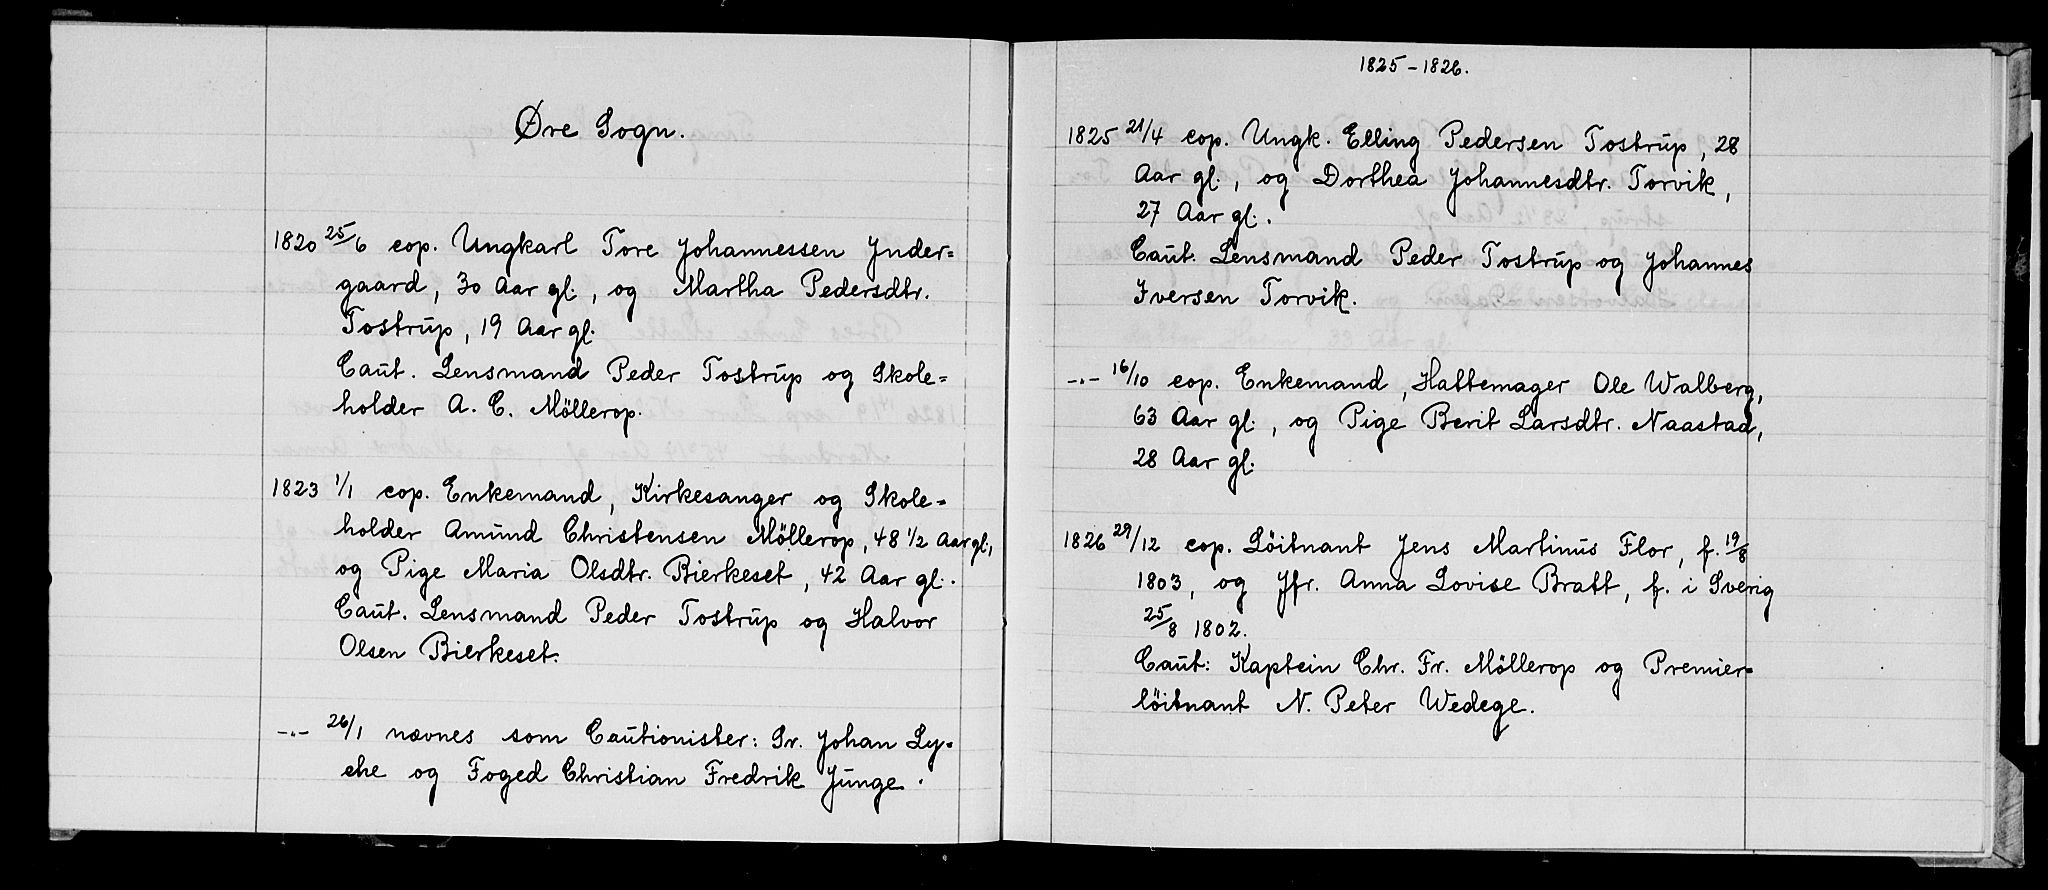 Øre Sogn.
1820 25/6 cop. Ungkarl Tore Johannessen Ynder=
gaard, 30 Aar gl., og Martha Pedersdtr.
Tostrup, 19 Aar gl.
Caut. Lensmand Peder Tostrup og Skole=
holder A. C. Möllerop.
1823 1/1 cop. Enkemand, Kirkesanger og Skole=
holder Amund Christensen Möllerop, 48 1/2 Aar gl.,
og Pige Maria Olsdtr. Bierkeset, 42 Aar gl.
Caut. Lensmand Peder Tostrup og Halvor
Olsen Bierkeset.
-"- 26/1 nævnes som Cautionister: Sr. Johan Ly=
che og Foged Christian Fredrik Junge.
1825-1826.
1825 21/4 cop. Ungk. Elling Pedersen Tostrup, 28
Aar gl., og Dorthea Johannesdtr. Torvik,
27 Aar gl.
Caut. Lensmand Peder Tostrup og Johannes
Iversen Torvik.
-"- 16/10 cop. Enkemand, Hattemager Ole Walberg,
63 Aar gl., og Pige Berit Larsdtr. Naastad,
28 Aar gl.
1826 29/12 cop. Löitnant Jens Martinus Flor, f. 19/8
1803, og Jfr. Anna Lovise Bratt, f. i Sverig
25/8 1802.
Caut: Kaptein Chr. Fr. Möllerop og Premier=
löitnant N. Peter Wedege.